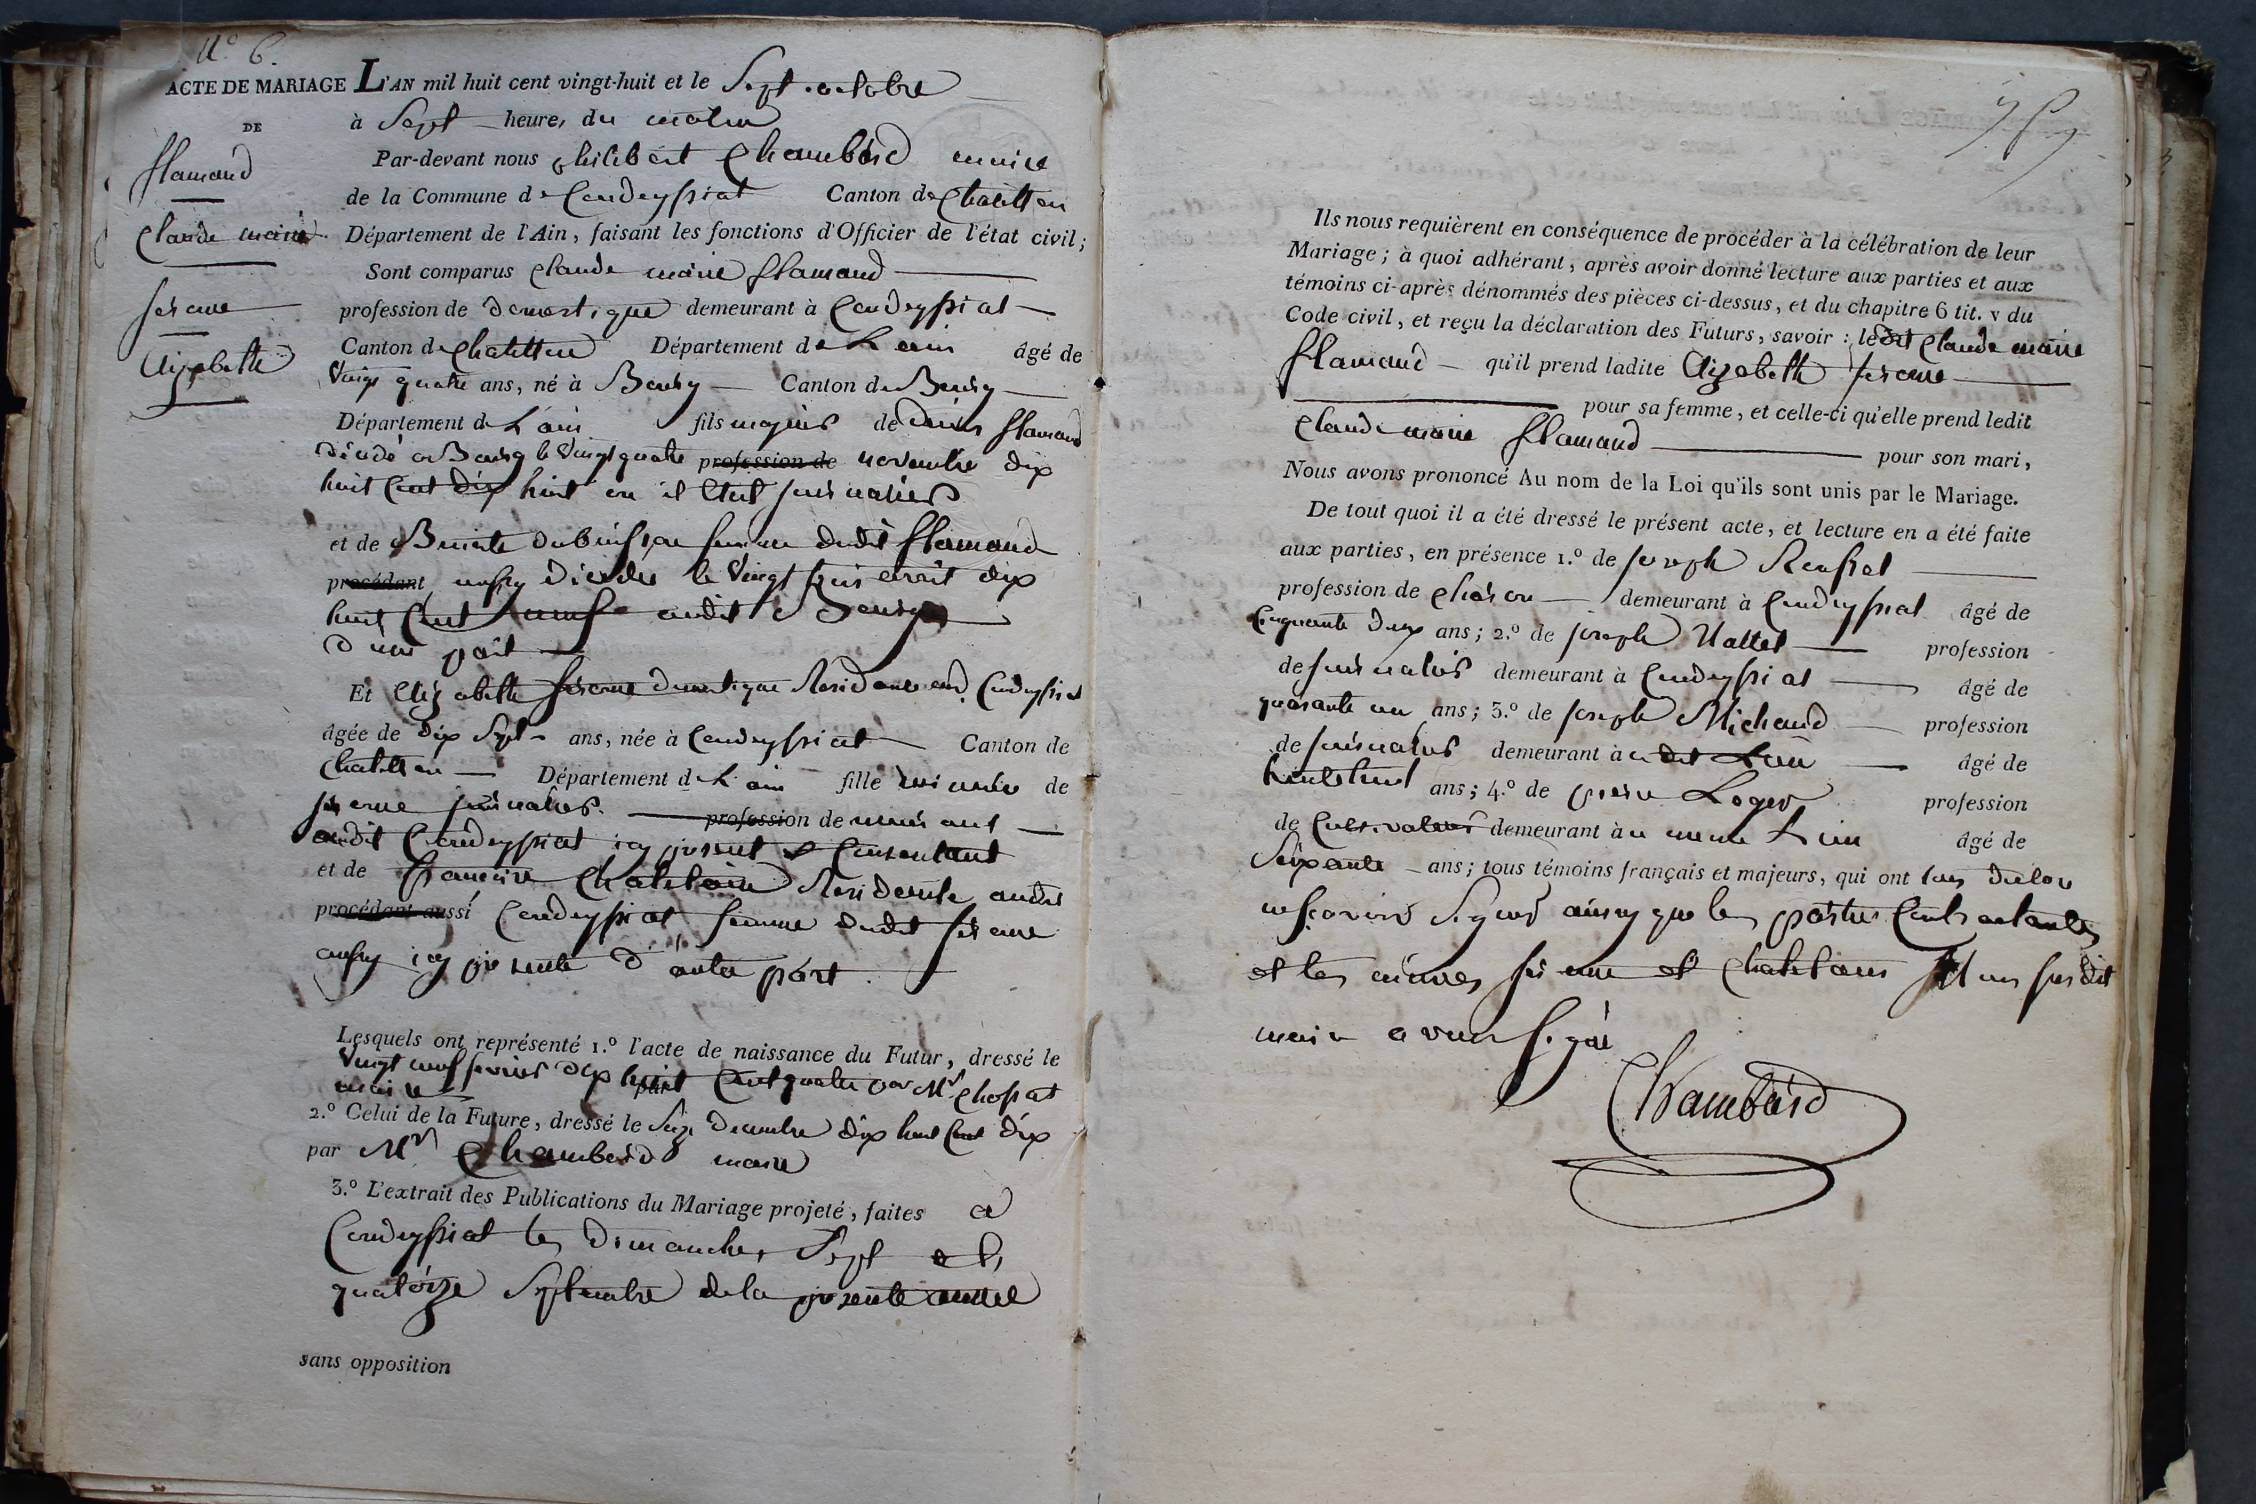 N.° 6.
ACTE DE MARIAGE L'AN mil huit cent vingt-huit et le Sept octobre
DE
à Sept heure, du matin
flamand
Par-devant nous philibert Chambard maire
de la Commune de Condeyssiat Canton de Chatillon
Claude marie
Département de l'Ain, faisant les fonctions d'Officier de l'état civil;
Sont comparus Claude marie flamand
profession de domestique demeurant à Condeyssiat
Elizabette
Canton de Chatillon Département de L'ain âgé de
vingt quatre ans, né à Bourg Canton de Bourg
Département de L'ain fils majeur de flamand
décédé a Bourg le vingt quatre profession de novembre dix
huit cent dix huit ou il etait journalier
et de Benoite Dubuisson femme dudit flamand
procédant aussy décédée le vingt trois avril dix
huit cent neuf audit Bourg
d'une part
Et Elizabette domestique Residente a Condeyssiat
âgée de dix Sept ans, née à Condeyssiat Canton de
Chatillon Département de L'ain fille mineure de
journalier profession de
audit Condeyssiat icy present et Consentant
et de francoise Chatelain Residente audit
procédant aussi Condeyssiat femme dudit
aussy icy presente d'autre part.
Lesquels ont représenté 1.° l'acte de naissance du Futur, dressé le
vingt neuf dix huit cent quatre par Mr Chossat
maire par
2.° Celui de la Future, dressé le Seize Decembre dix huit cent dix
par Mr Chambard maire
3.° L'extrait des Publications du Mariage projeté, faites a
Condeyssiat les Dimanches Sept et
quatorze Septembre de la presente année
sans opposition
Ils nous requièrent en conséquence de procéder à la célébration de leur
Mariage; à quoi adhérant, après avoir donné lecture aux parties et aux
témoins ci-après dénommés des pièces ci-dessus, et du chapitre 6 tit. v du
Code civil, et reçu la déclaration des Futurs, savoir: ledit Claude marie
flamand qu'il prend ladite Elizabette
pour sa femme, et celle-ci qu'elle prend ledit
Claude marie flamand pour son mari,
Nous avons prononcé Au nom de la Loi qu'ils sont unis par le Mariage.
De tout quoi il a été dressé le présent acte, et lecture en a été faite
aux parties, en présence 1.° de joseph
profession de demeurant à Condeyssiat âgé de
Cinquante deux ans; 2.° de joseph profession
de journalier demeurant à Condeyssiat âgé de
quarante un ans; 3.° de joseph Michaud profession
de journalier demeurant à u dit Lieu âgé de
ans; 4.° de pierre Loger profession
de Cultivateur demeurant à u meme Lieu âgé de
Soixante ans; tous témoins français et majeurs, qui ont
Signer ainsy que les parties Contractantes
et les et Chatelain susdit
maire avons Signé
Chambard